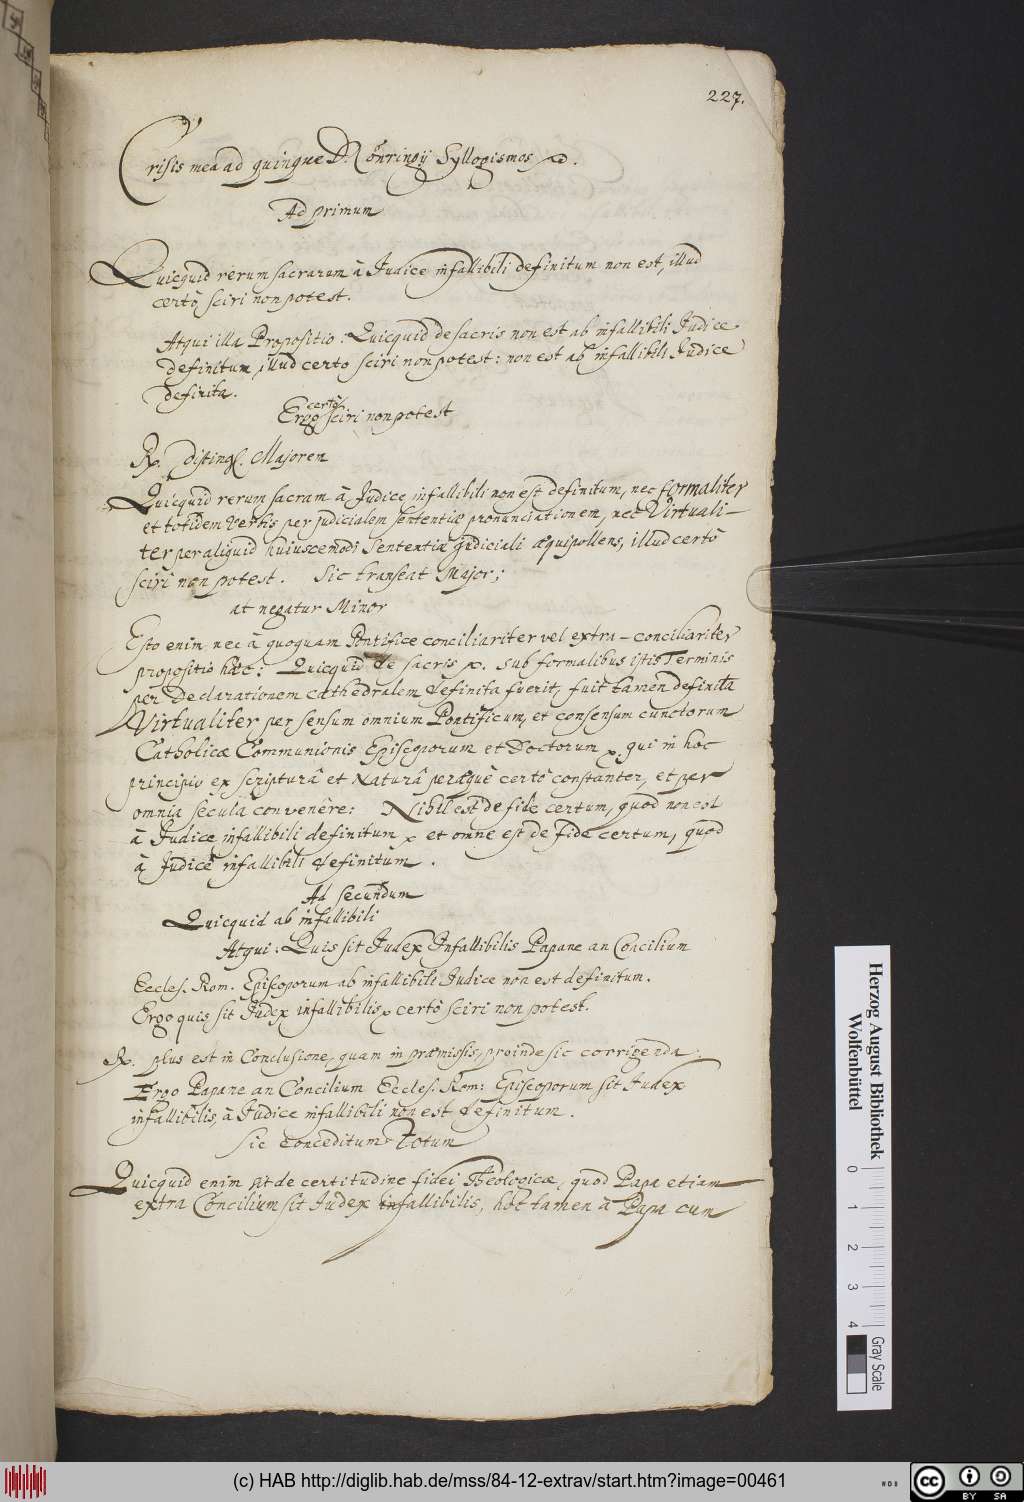 227.
Crisis mea ad quinque D. Conringij Syllogismos
Ad primum
Quicquid rerum sacrarum à Judice infallibili definitum non est, illud
certò sciri non potest.
Atqui illa Propositio: Quicquid de sacris non est ab infallibili Judice
definitum, illud certo sciri non potest: non est ab infallibili Judice
definita.
certò
Ergo sciri non potest
Rx. disting. Majorem
Quicquid rerum sacram à Judice infallibili non est definitum, nec formaliter
et totidem verbis per judicialem sententiæ pronunciationem, nec Virtuali-
ter per aliquid huiuscemodi Sententiæ judiciali æquipollens, illud certò
sciri non potest. Sic transeat Major;
at negatur Minor
Esto enim nec à quoquam Pontifice conciliariter vel extra-conciliariter
propositio hæc: Quicquid de sacris sub formalibus istis Terminis
per declarationem cathedralem definita fuerit, fuit tamen definita
Virtualiter per sensum omnium Pontificum, et consensum cunctorum
Catholicæ Communionis Episcoporum et Doctorum, qui in hoc
principio ex scripturâ et Naturâ peræquè certò constanter, et per
omnia secula convenêre: Nihil est de fide certum, quod non est
à Judice infallibili definitum, et omne est de Fide certum, quod
à Judice infallibili definitum.
Ad secundum
Quicquid ab infallibili
Atqui: Quis sit Judex Infallibilis Papane an Concilium
Eccles. Rom. Episcoporum ab infallibili Judice non est definitum.
Ergo quis sit Judex infallibilis, certò sciri non potest.
Rx. plus est in Conclusione, quam in præmissis, proinde sic corrigenda.
Ergo Papane an Concilium Eccles. Rom: Episcoporum sit Judex
infallibilis, à Judice infallibili non est definitum.
Sic conceditum Totum
Quicquid enim sit de certitudine fidei Theologicæ, quod Papa etiam
extra Concilium sit Judex infallibilis, hoc tamen à Papa cum
Herzog August Bibliothek
Wolfenbüttel
0 1 2 3 4
Gray Scale
(c) HAB http://diglib.hab.de/mss/84-12-extrav/start.htm?image=00461
cc BY SA